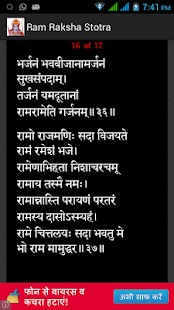 7:41 PM
Ram Raksha Stotra
16 of 17
भर्जनं भवबीजानामर्जनं
सुखसंपदाम्।
तर्जनं यमदूतानां
रामरामेति गर्जनम्॥३६॥
रामो राजमणिः सदा विजयते
रामं रमेशं भजे।
रामेणाभिहता निशाचरचमू
रामाय तस्मै नमः।
रामान्नास्ति परायणं परतरं
रामस्य दासोऽस्म्यहं।
रामे चित्तलयः सदा भवतु मे
भो राम मामुद्धर॥३७॥
फोन से वायरस व
कचरा हटाएं!
अभी साफ करें